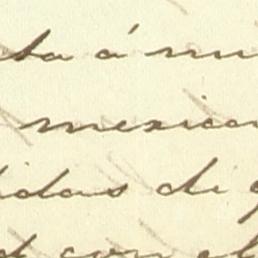 ta á mu
mexican
idas de g
d con el